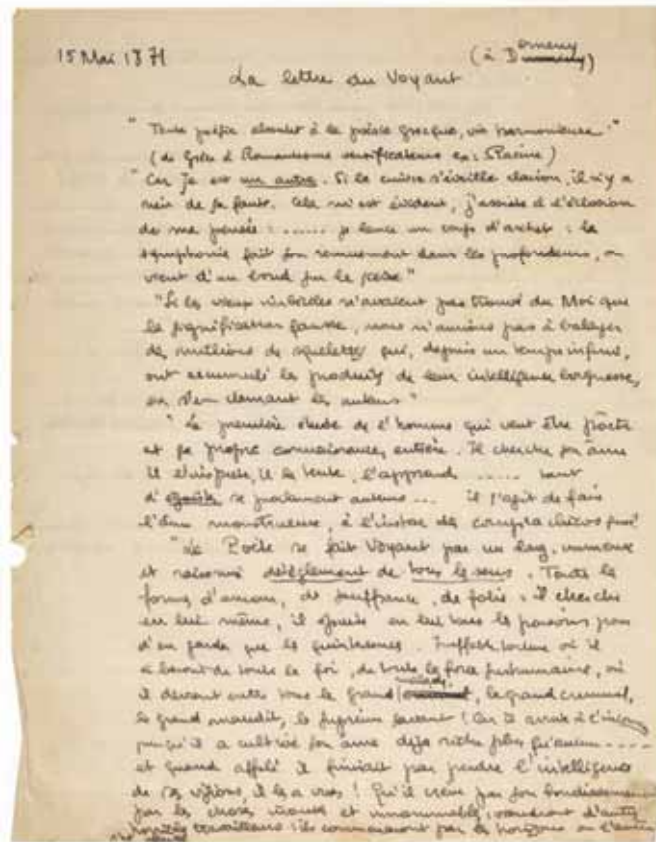 15 Mai 1871
(à Demeny)
La lettre du Voyant
"Toute poésie aboutit à la poésie grecque, vie harmonieuse."
(de Grèce à Romantisme versificateurs ex: Racine)
"Car Je est un autre. Si le cuivre s'éveille clairon, il n'y a
rien de sa faute. Cela m'est évident, j'assiste à l'éclosion
de ma pensée : ...... je lance un coup d'archet : la
symphonie fait son remuement dans les profondeurs, ou
vient d'un bond sur la scène"
"Si les vieux imbéciles n'avaient pas trouvé du Moi que
la signification fausse, nous n'aurions pas à balayer
des millions de squelettes qui, depuis un temps infini,
ont accumulé les produits de leur intelligence borgnesse,
en s'en clamant les auteurs"
"La première étude de l'homme qui veut être poète
est sa propre connaissance, entière. Il cherche son âme
il l'inspecte, il la tente, l'apprend ..... tant
d'égoïstes se proclament auteurs ... il s'agit de faire
l'âme monstrueuse, à l'instar des comprachicos
"Le Poète se fait Voyant par un long, immense
et raisonné dérèglement de tous les sens. Toutes les
formes d'amour, de souffrance, de folie : il cherche
en lui même, il épuise en lui tous les poisons pour
n'en garder que les quintessences. Ineffable torture où il
a besoin de toute la foi, de toute la force surhumaine, où
il devient entre tous le grand malade, le grand criminel,
le grand maudit, le suprême savant ! Car il arrive à l'inconnu
puisqu'il a cultivé son âme déjà riche plus qu'aucun ----
et quand affolé il finirait par perdre l'intelligence
de ses visions, il les a vues ! Qu'il crève par son bondissement
par les choses inouïes et innommables, viendront d'autres
horribles travailleurs : ils commenceront par les horizons où l'autre